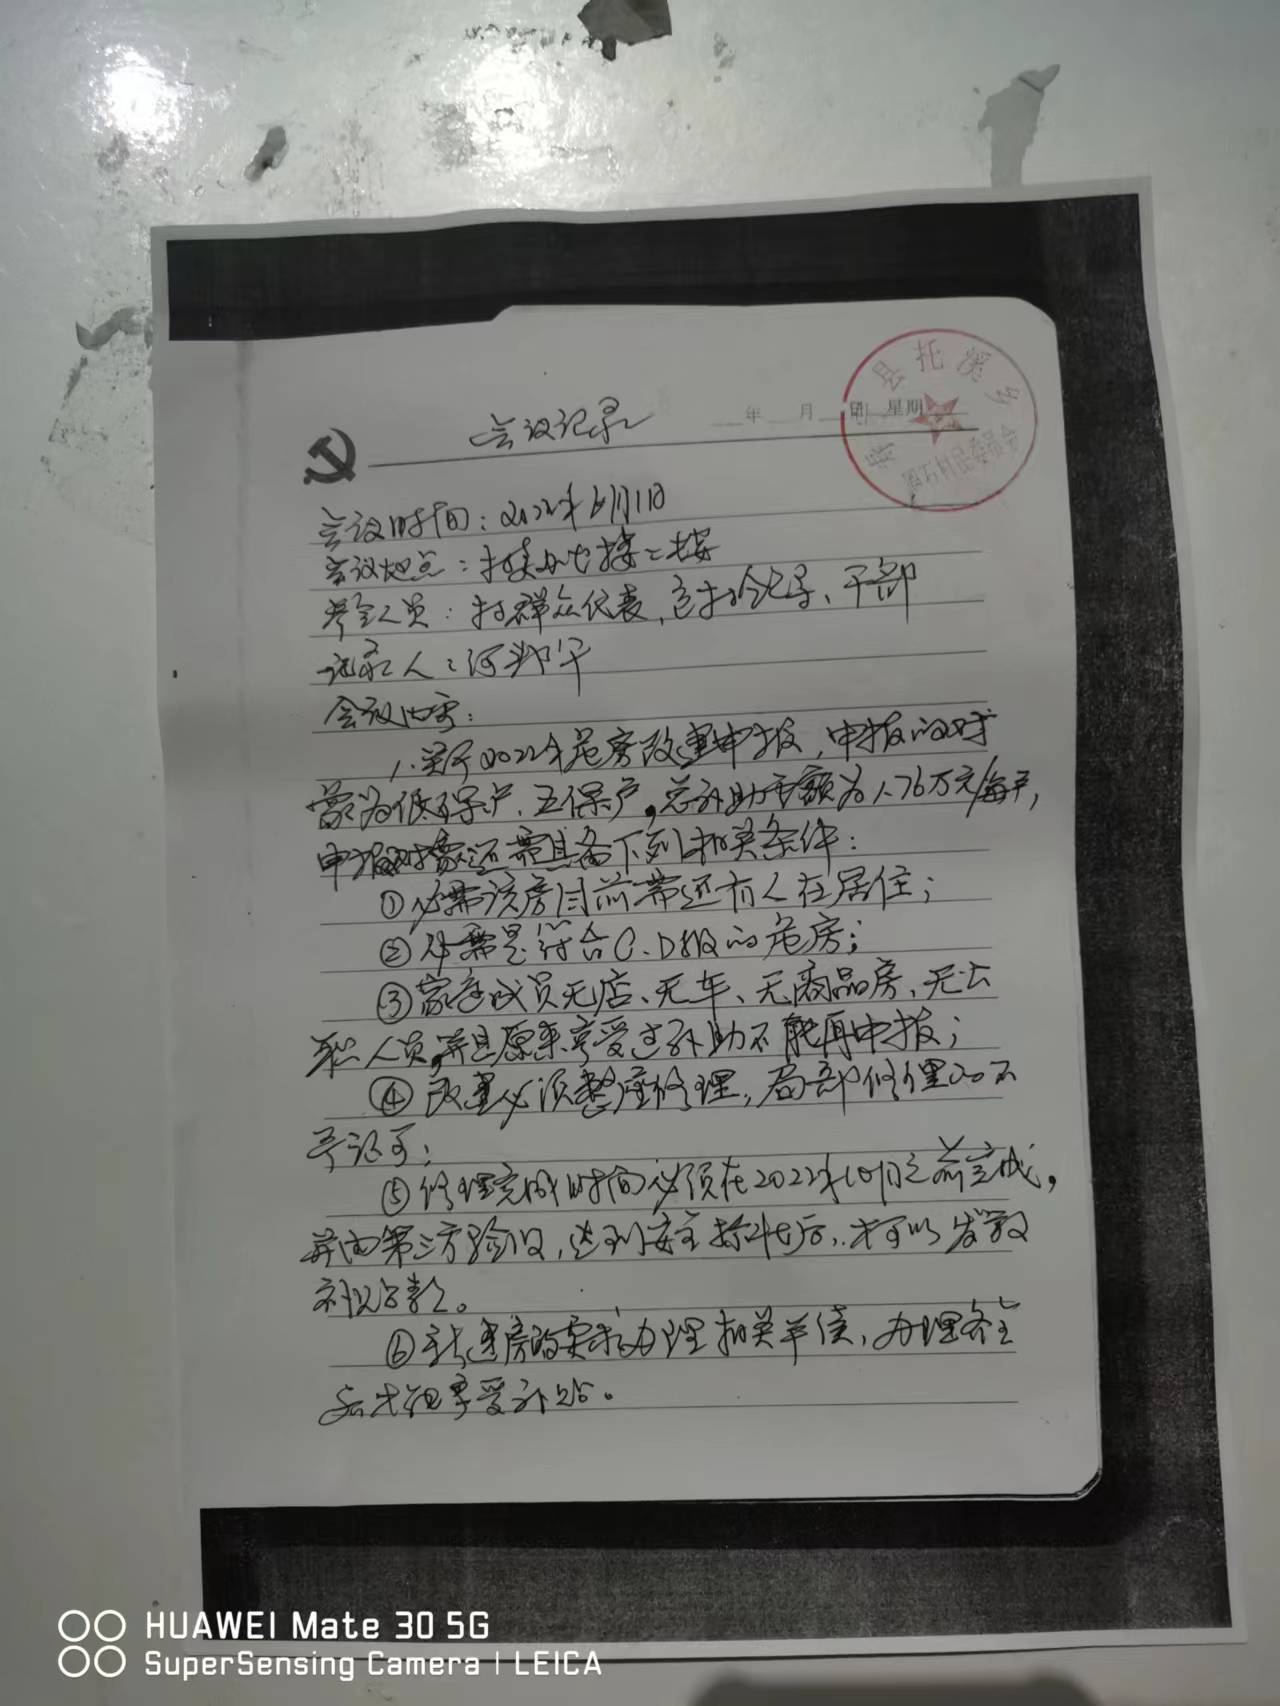 年 月 日 星期
县托溪乡
村民委员会
会议记录
会议时间：2022年6月1日
会议地点：村委办七楼二楼
参会人员：村群众代表，包村领导、干部
记录人：
会议内容：
1.关于2022年危房改建申报，申报的对
象为低保户、五保户，总补助金额为1.76万元/每户，
申报对象还需具备下列相关条件：
①必需该房目前需还有人在居住；
②必需是符合C.D级的危房；
③家庭成员无店、无车、无商品房、无公
职人员，并且原来享受过补助不能再申报；
④改建必须整座修理，局部修理的不
予认可；
⑤修理完成时间必须在2022年10月之前完成，
并由第三方验收，达到安全标准后，才可以发放
补贴款。
⑥新建房的要求办理相关手续，办理齐全
后才能享受补贴。
HUAWEI Mate 30 5G
SuperSensing Camera | LEICA